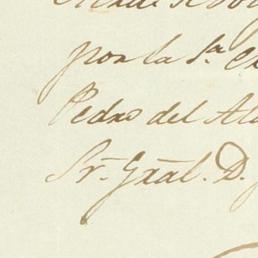 por la Sa
Pedro del Al
Sr. Gral. D.